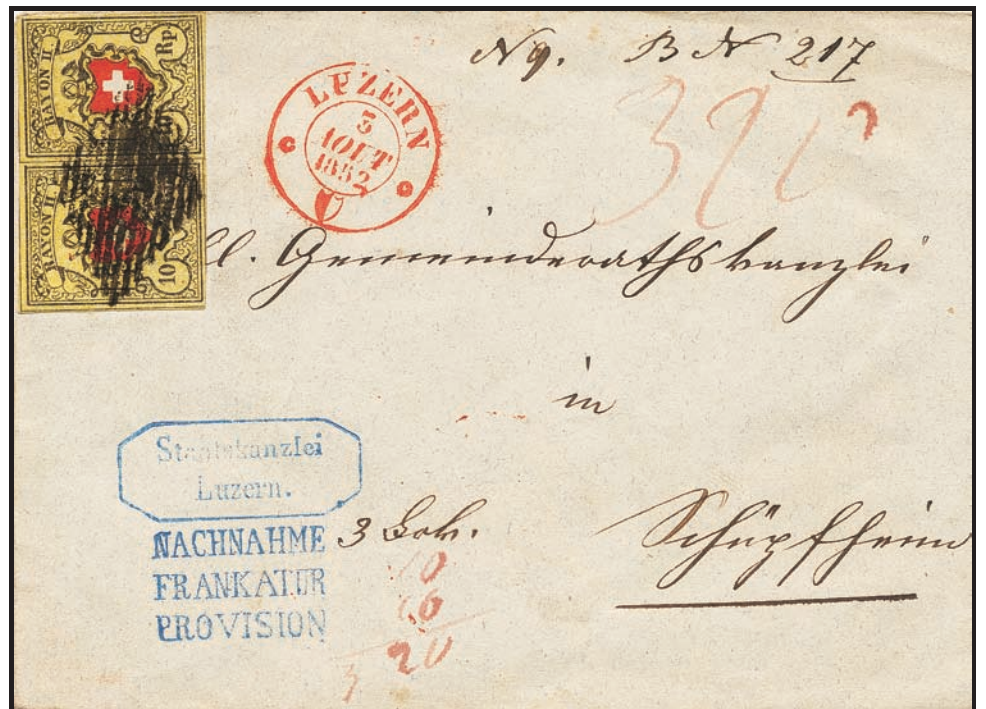 RAYON II.
Rp
RAYON II.
10
LUZERN
3
AOUT
1852
N 9. B N 217
320
Gemeinderathskanzlei
in
Schüpfheim
Staatskanzlei
Luzern.
NACHNAHME 3
FRANKATUR
PROVISION
10
20